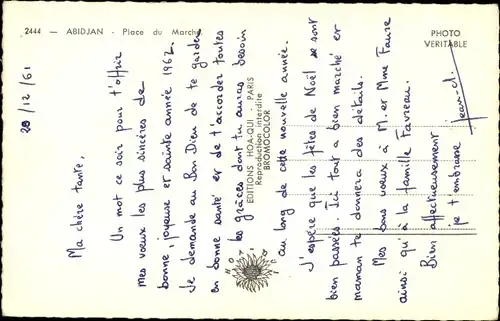 2444 — ABIDJAN - Place du Marché
PHOTO
VERITABLE
EDITIONS HOA-QUI - PARIS
Reproduction interdite
BROMOCOLOR
HOA-QUI
28/12/61
Ma chère tante,
Un mot ce soir pour t'offrir
mes voeux les plus sincères de
bonne, joyeuse et sainte année 1962.
Je demande au Bon Dieu de te garder
en bonne santé et de t'accorder toutes
les grâces dont tu auras besoin
au long de cette nouvelle année.
J'espère que les fêtes de Noël se sont
bien passées. Ici tout a bien marché et
maman te donnera des détails.
Mes bons voeux à M. et Mme Faure
ainsi qu'à la famille Favreau.
Bien affectueusement
je t'embrasse
Jean-Cl.